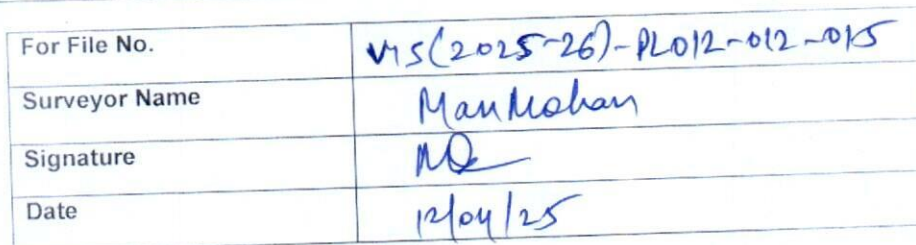 For File No. VIS(2025-26)-PL012-012-015
Surveyor Name ManMohan
Signature
Date 12/04/25